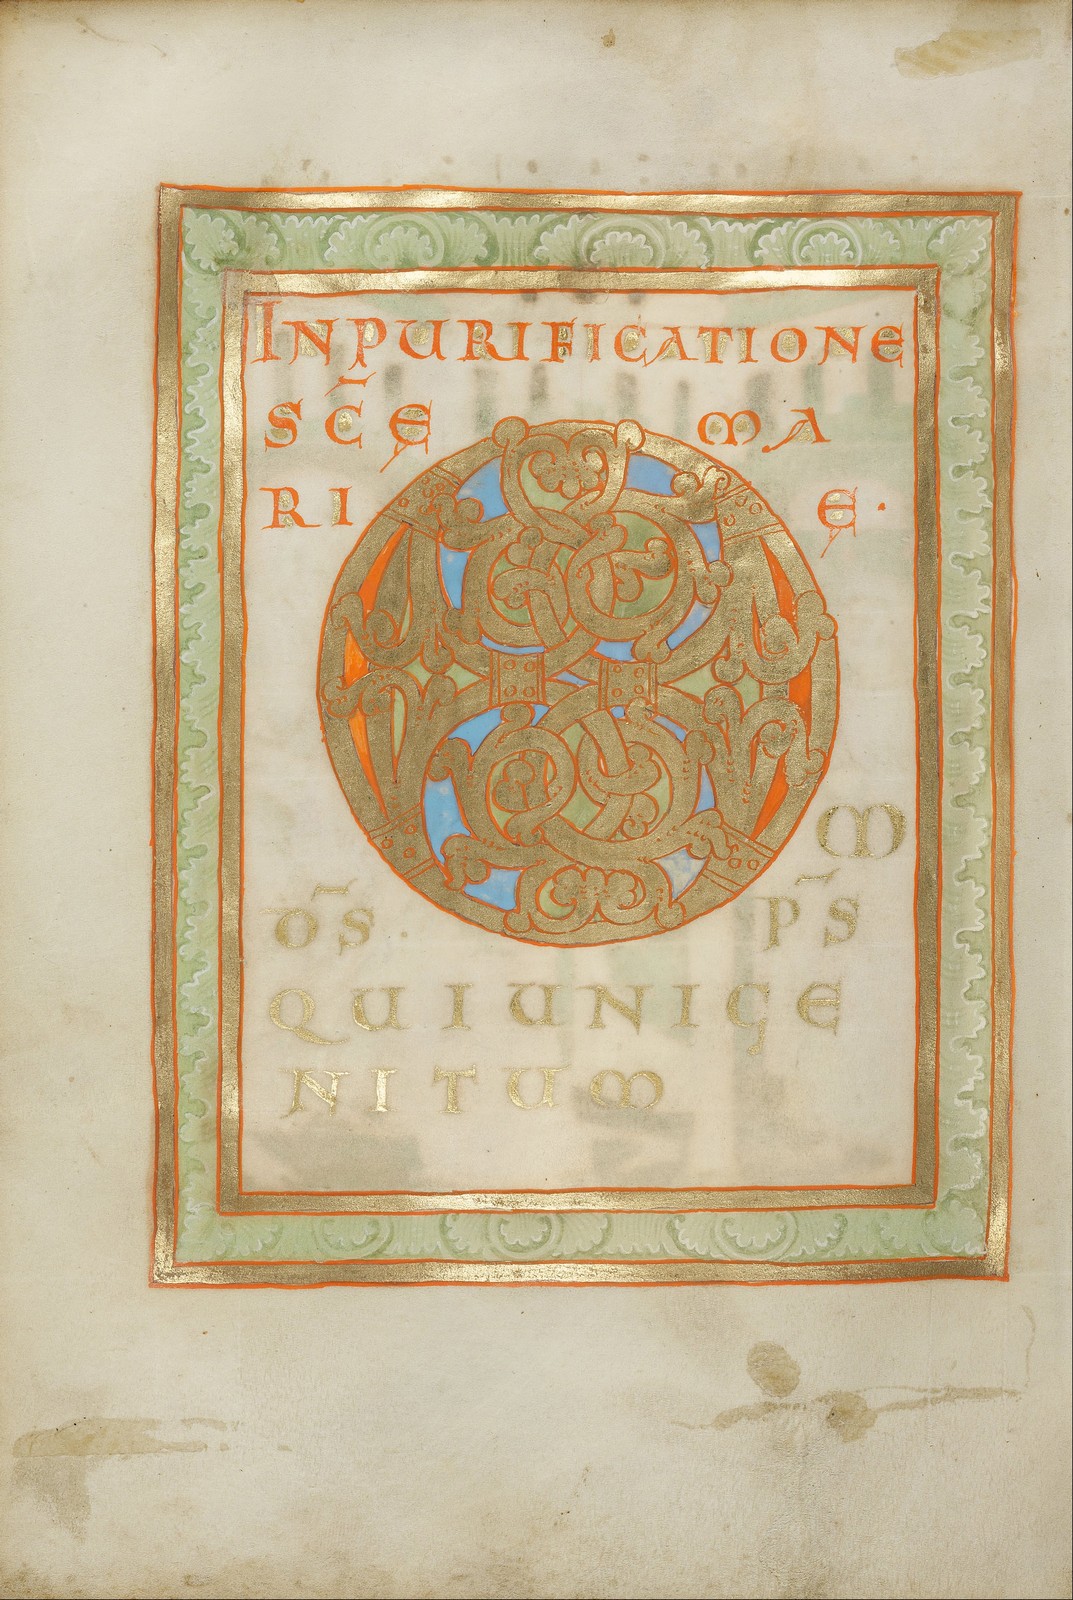 INPURIFICATIONE
SC̄Ę MA
RIĘ·
O
M
D̄S P̄S
QUIUNIGE
NITUM